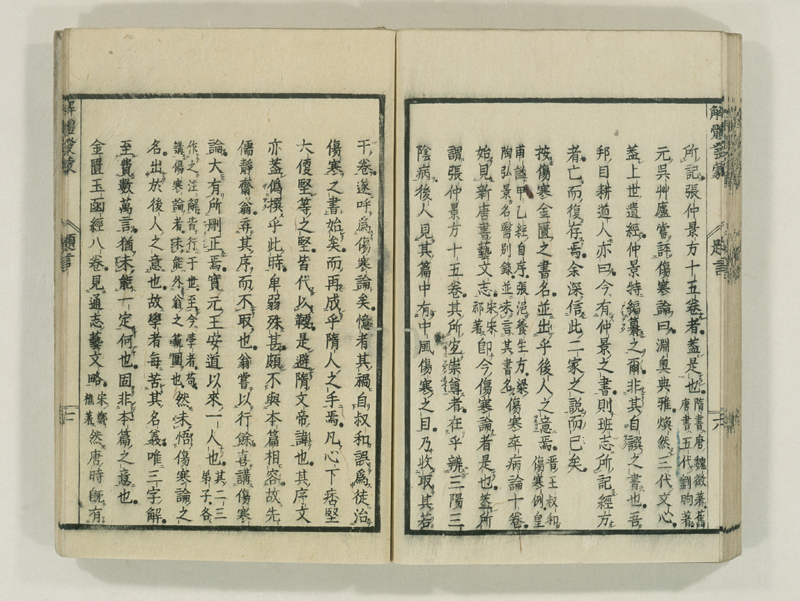 所記張仲景方十五卷者蓋是也隋書唐魏徵著舊唐書五代劉昫著
元吳艸廬嘗評傷寒論曰淵奧典雅煥然三代文心
蓋上世遺經仲景特編纂之爾非其自譔之書也吾
邦目耕道人亦曰今有仲景之書則班志所記經方
者亡而復存焉余深信此二家之說而已矣
按傷寒金匱之書名並出乎後人之意焉晉王叔和傷寒例皇
甫謐甲乙經自序張湛養生方梁陶弘景名醫別錄並未言其書名傷寒卒病論十卷
始見新唐書藝文志宋宋祁著即今傷寒論者是也蓋所
謂張仲景方十五卷其所宝崇尊者在乎辨三陽三
陰病後人見其篇中有中風傷寒之目乃收取其若
干卷遂呼爲傷寒論矣憶者其禍自叔和誤爲徒治
傷寒之書始矣而再成乎隋人之手焉凡心下痞堅
大便堅等之堅皆代以鞕是避隋文帝諱也其序文
亦蓋偽撰乎此時卑弱殊甚頗不與本篇相容故先
儒靜齋翁弃其序而不取也翁嘗以行餘喜講傷寒
論大有所刪正焉實元王安道以來一人也其二三弟子各
作之注解齎行于世至今學者苟講傷寒論者未能外翁之範圍也然未悟傷寒論之
名出於後人之意也故學者每苦其名義唯三字解
至費數萬言猶未能一定何也固非本篇之意也
金匱玉函經八卷見通志藝文略宋鄭樵著然唐時既有
解體發蒙
題言
六
解體發蒙
題言